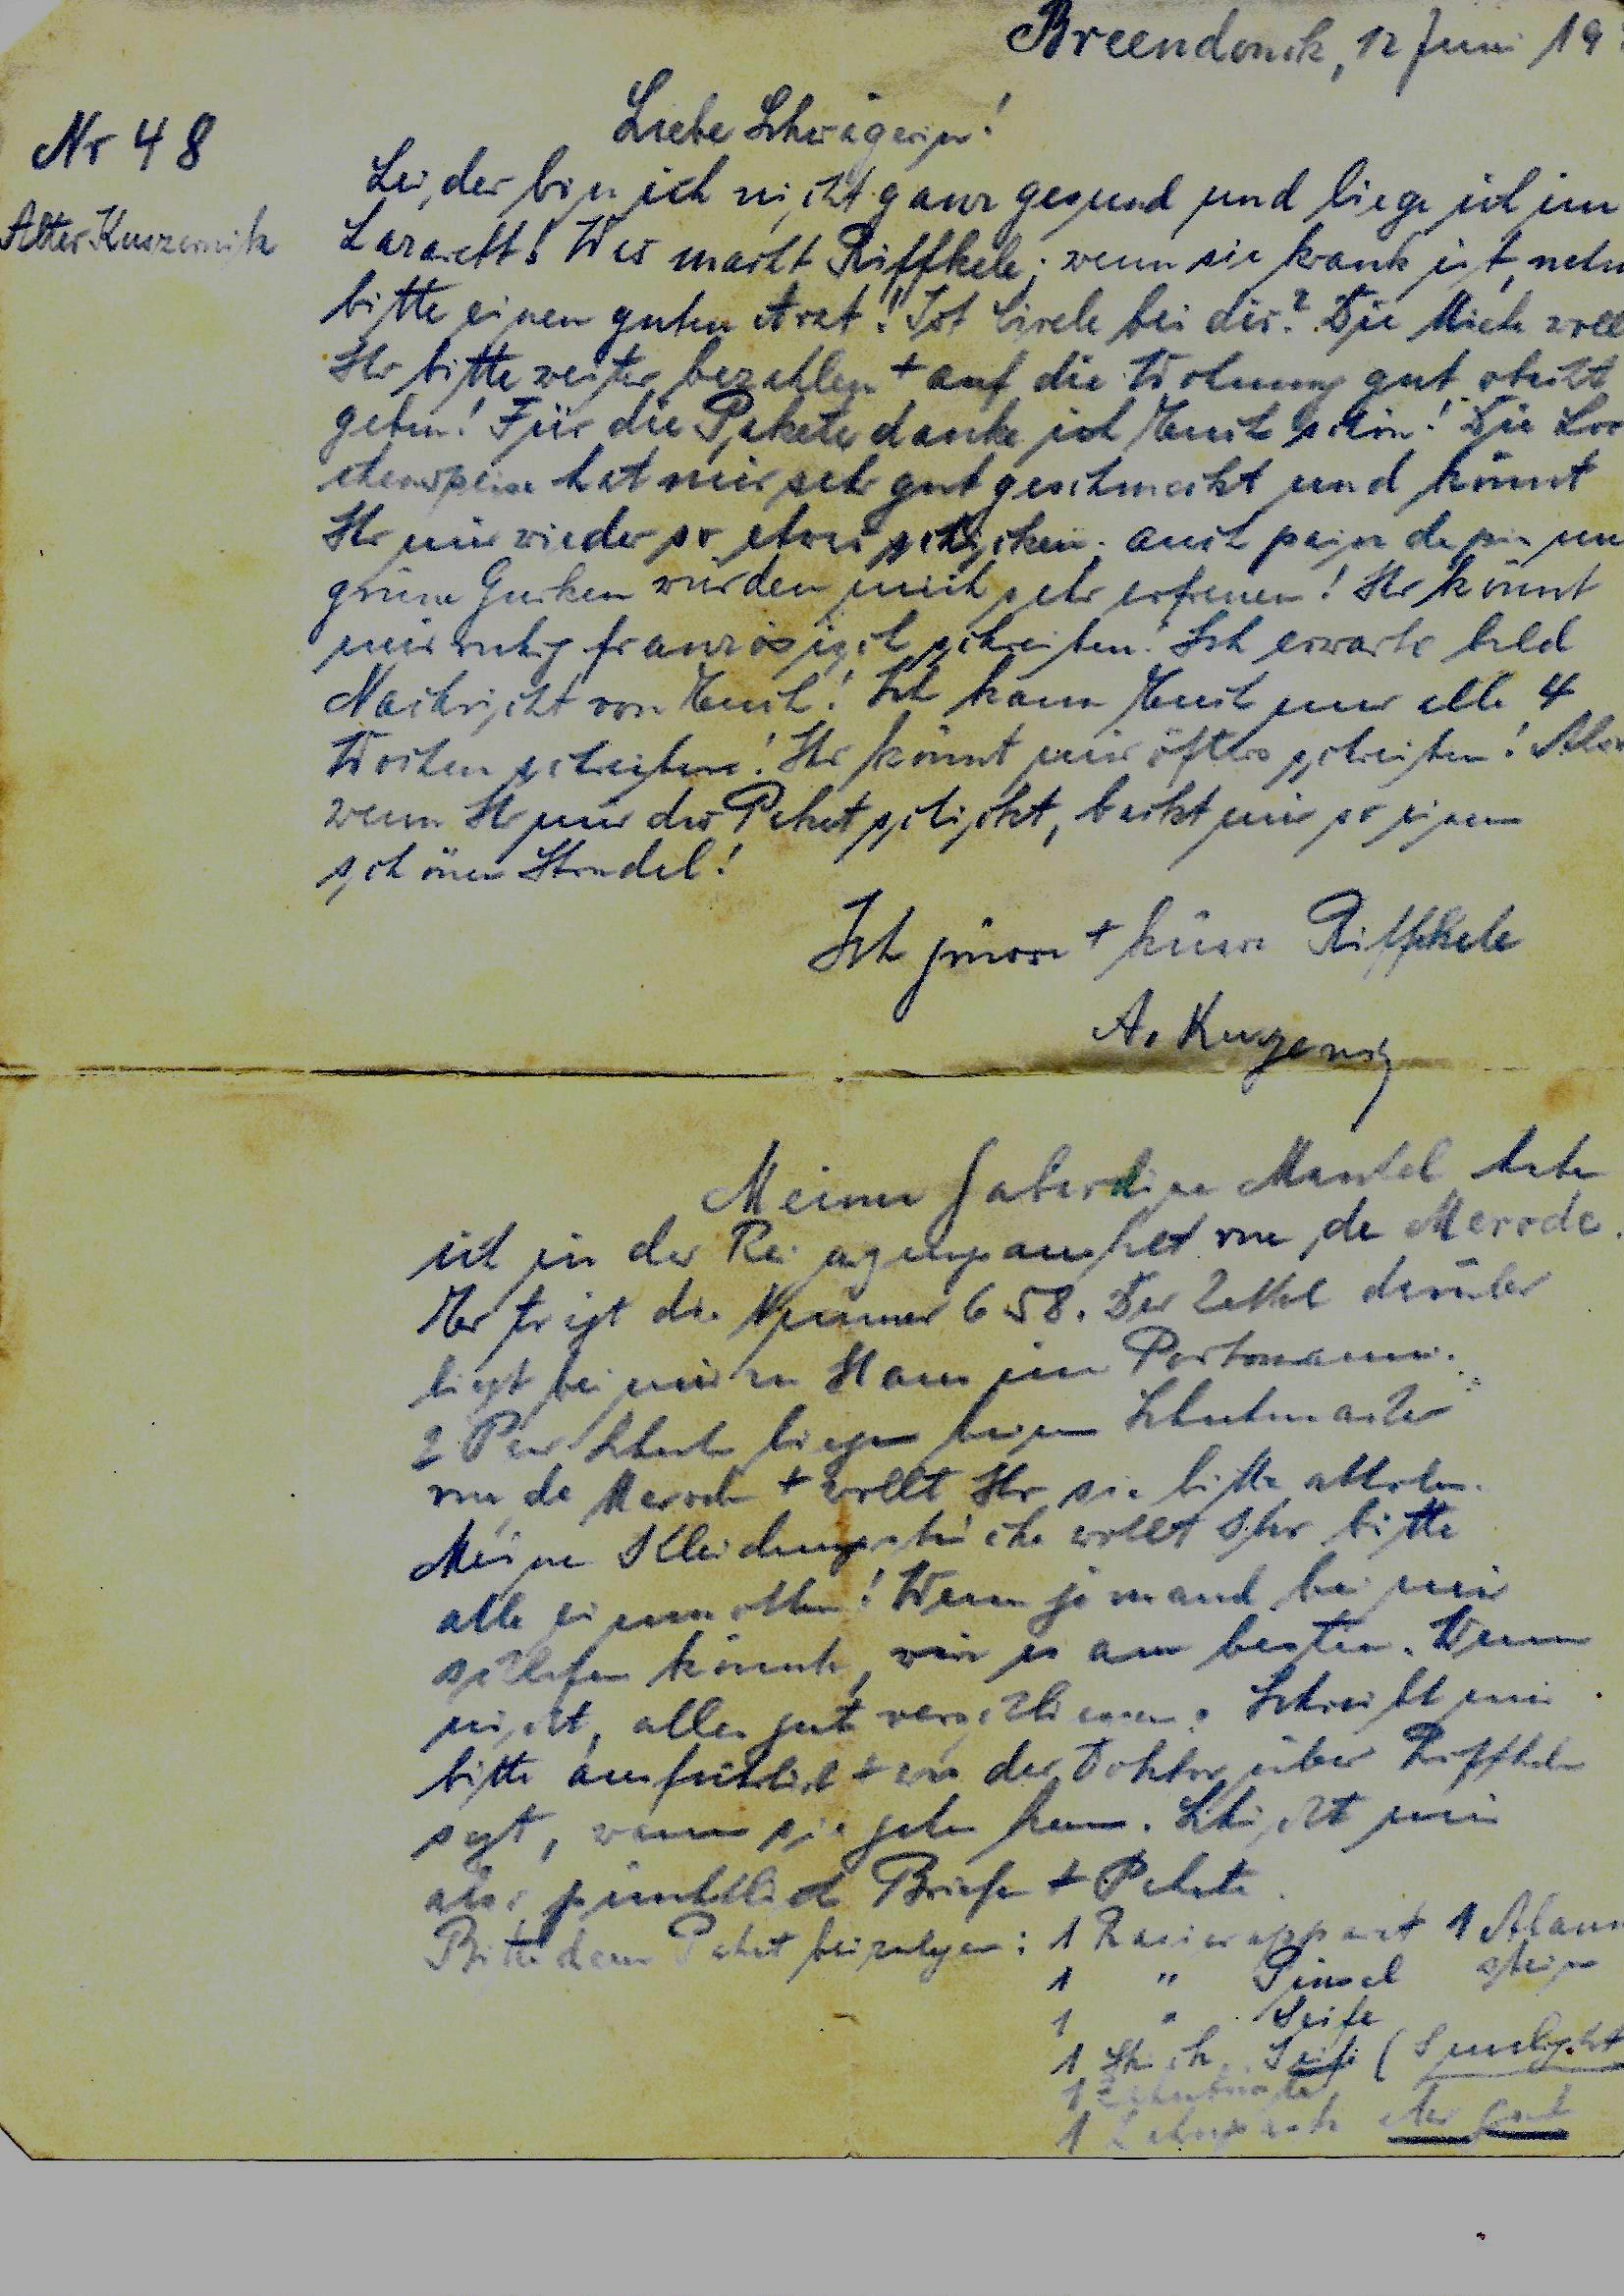 Breendonck, 12 Juni 19
Nr 48
Liebe Schwägerin!
Leider bin ich nicht ganz gesund und liege ich im
Alter Kuszernik
Lazarett! Was macht Riffkele; wenn sie krank ist, nehm
bitte einen guten Arzt! Ist bei dir? Die Miete woll
Ihr bitte weiter bezahlen + auf die Wohnung gut obacht
geben! Für die Pakete danke ich Euch schön!  Die
hat mir sehr gut geschmeckt und könnt
Ihr mir wieder so etwas schicken. auch pain de un
grüne Gurken würden mich sehr erfreuen! Ihr könnt
mir ruhig französisch schreiben! Ich erwarte bald
Nachricht von Euch! Ich kann Euch nur alle 4
Wochen schreiben! Ihr könnt mir öfters schreiben! Also
wenn Ihr mir das Paket schickt, backt mir so einen
schönen Strudel!
Ich grüsse + küsse Riffkele
A. Kuszerni
Meinen Gaberdine Mantel habe
ich in der Reinigungsanstalt rue de Merode.
Er trägt die Nummer 658. Der Zettel darüber
liegt bei mir zu Haus im Portomanni.
2 Paar Schuhe liegen beim Schuhmacher
rue de Merode + wollt Ihr sie bitte abholen.
Meine Kleidungstücke wollt Ihr bitte
alle einmotten! Wenn jemand bei mir
schlafen könnte, wär es am besten. Wenn
nicht, alles gut verschliessen. Schreibt mir
bitte ausführlich + was der Doktor über Riffkele
sagt, wann sie gehn kann. Schickt mir
also pünktlich Briefe + Pakete.
Bitte dem Paket beizulegen: 1 Rasierapparat 1 Alaun
1 " Pinsel stein
1 " Seife
1 Stück Seife (Sunlight
1 Zahnbürste
1 Zahnpasta aber gut